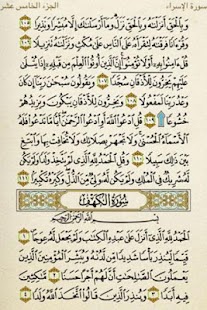 سورة الإسراء الجزء الخامس عشر
وَبِٱلْحَقِّ أَنزَلْنَٰهُ وَبِٱلْحَقِّ نَزَلَ وَمَآ أَرْسَلْنَٰكَ إِلَّا مُبَشِّرًا وَنَذِيرًا ١٠٥
وَقُرْءَانًا فَرَقْنَٰهُ لِتَقْرَأَهُۥ عَلَى ٱلنَّاسِ عَلَىٰ مُكْثٍ وَنَزَّلْنَٰهُ تَنزِيلًا ١٠٦
قُلْ ءَامِنُوا۟ بِهِۦٓ أَوْ لَا تُؤْمِنُوٓا۟ إِنَّ ٱلَّذِينَ أُوتُوا۟ ٱلْعِلْمَ مِن قَبْلِهِۦٓ إِذَا يُتْلَىٰ
عَلَيْهِمْ يَخِرُّونَ لِلْأَذْقَانِ سُجَّدًا ١٠٧ وَيَقُولُونَ سُبْحَٰنَ رَبِّنَآ إِن كَانَ
وَعْدُ رَبِّنَا لَمَفْعُولًا ١٠٨ وَيَخِرُّونَ لِلْأَذْقَانِ يَبْكُونَ وَيَزِيدُهُمْ
خُشُوعًا ۩ ١٠٩ قُلِ ٱدْعُوا۟ ٱللَّهَ أَوِ ٱدْعُوا۟ ٱلرَّحْمَٰنَ أَيًّا مَّا تَدْعُوا۟ فَلَهُ
ٱلْأَسْمَآءُ ٱلْحُسْنَىٰ وَلَا تَجْهَرْ بِصَلَاتِكَ وَلَا تُخَافِتْ بِهَا وَٱبْتَغِ
بَيْنَ ذَٰلِكَ سَبِيلًا ١١٠ وَقُلِ ٱلْحَمْدُ لِلَّهِ ٱلَّذِى لَمْ يَتَّخِذْ وَلَدًا وَلَمْ يَكُن
لَّهُۥ شَرِيكٌ فِى ٱلْمُلْكِ وَلَمْ يَكُن لَّهُۥ وَلِىٌّ مِّنَ ٱلذُّلِّ وَكَبِّرْهُ تَكْبِيرًا ١١١
سُورَةُ ٱلْكَهْفِ
بِسْمِ ٱللَّهِ ٱلرَّحْمَٰنِ ٱلرَّحِيمِ
ٱلْحَمْدُ لِلَّهِ ٱلَّذِىٓ أَنزَلَ عَلَىٰ عَبْدِهِ ٱلْكِتَٰبَ وَلَمْ يَجْعَل لَّهُۥ عِوَجَا ١
قَيِّمًا لِّيُنذِرَ بَأْسًا شَدِيدًا مِّن لَّدُنْهُ وَيُبَشِّرَ ٱلْمُؤْمِنِينَ ٱلَّذِينَ
يَعْمَلُونَ ٱلصَّٰلِحَٰتِ أَنَّ لَهُمْ أَجْرًا حَسَنًا ٢ مَّٰكِثِينَ
فِيهِ أَبَدًا ٣ وَيُنذِرَ ٱلَّذِينَ قَالُوا۟ ٱتَّخَذَ ٱللَّهُ وَلَدًا ٤